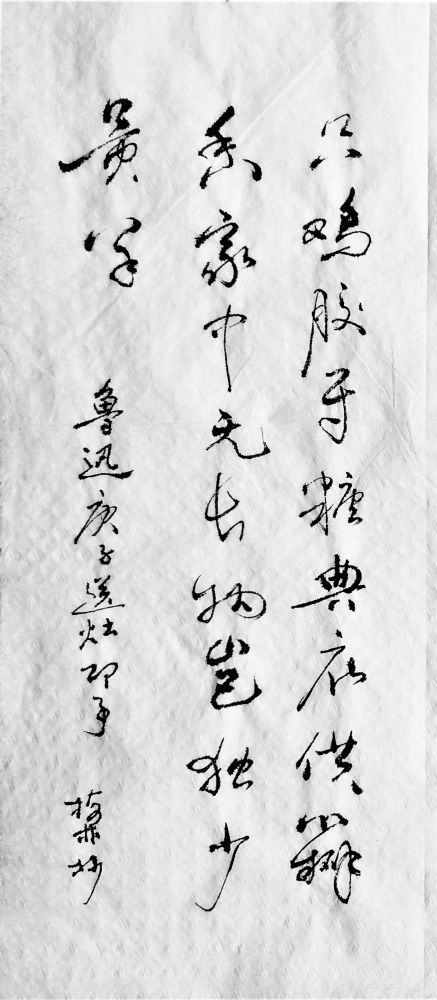 只鸡胶牙糖典衣供瓣
香家中无长物岂独少
黄羊
鲁迅庚子送灶即事
抄